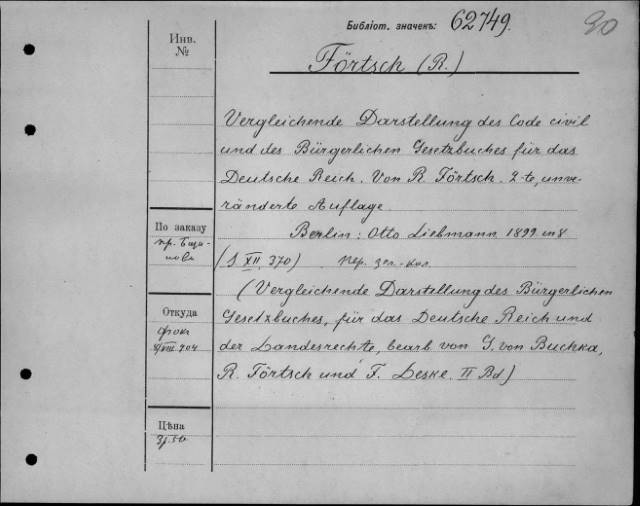 Библіот. значекъ: 62749.
Förtsch (R.)
Vergleichende Darstellung des Code civil
und des Bürgerlichen Gesetzbuches für das
Deutsche Reich. Von R. Förtsch. 2-te, unve-
ränderte Auflage
Berlin: Otto Liebmann 1899 in 8
XII, 370)
(Vergleichende Darstellung des Bürgerlichen
Gesetzbuches, für das Deutsche Reich und
der Landesrechte, bearb. von G. von Buchka,
R. Förtsch und F. Leske. II Bd)
Инв.
№
По заказу
Откуда
Цѣна